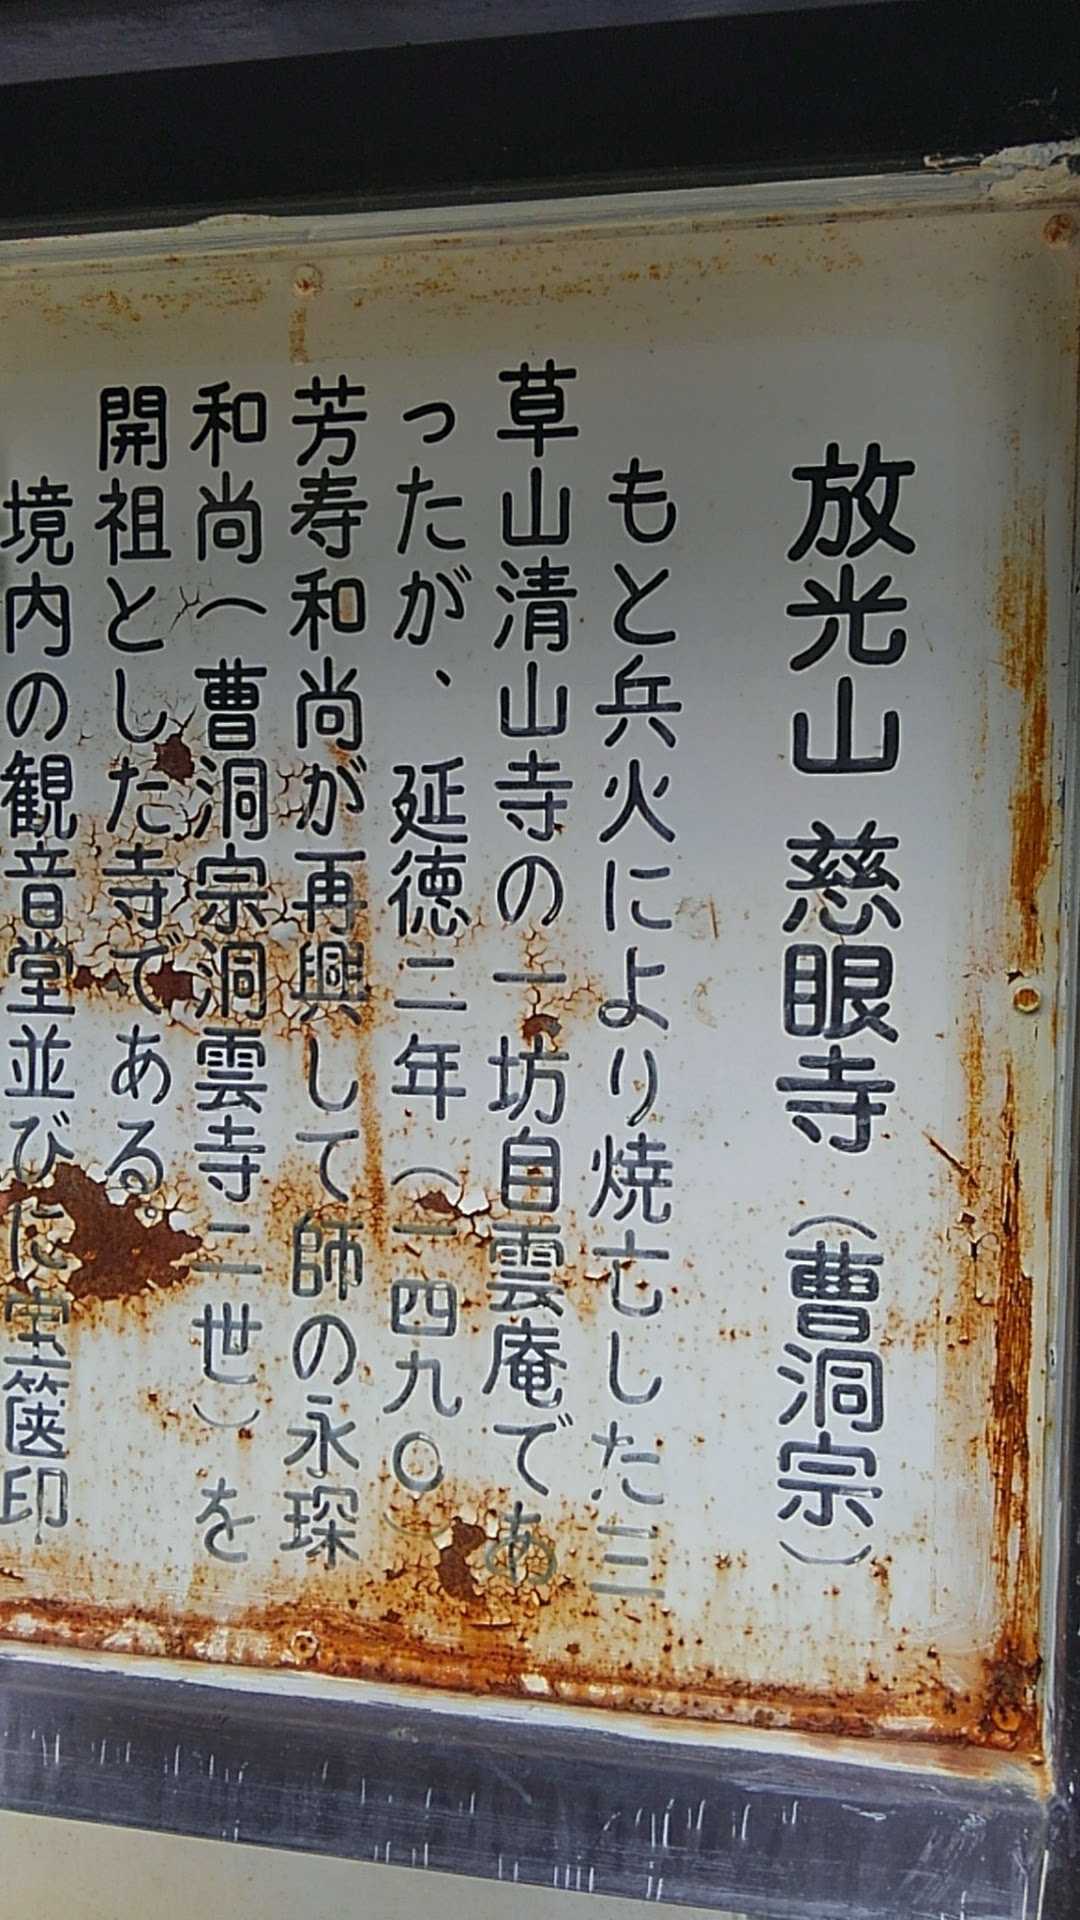 放光山 慈眼寺（曹洞宗）
もと兵火により焼亡した三
草山清山寺の一坊自雲庵であ
ったが、延徳二年（一四九〇）
芳寿和尚が再興して師の永琛
和尚（曹洞宗洞雲寺二世）を
開祖とした寺である。
境内の観音堂並びに宝篋印